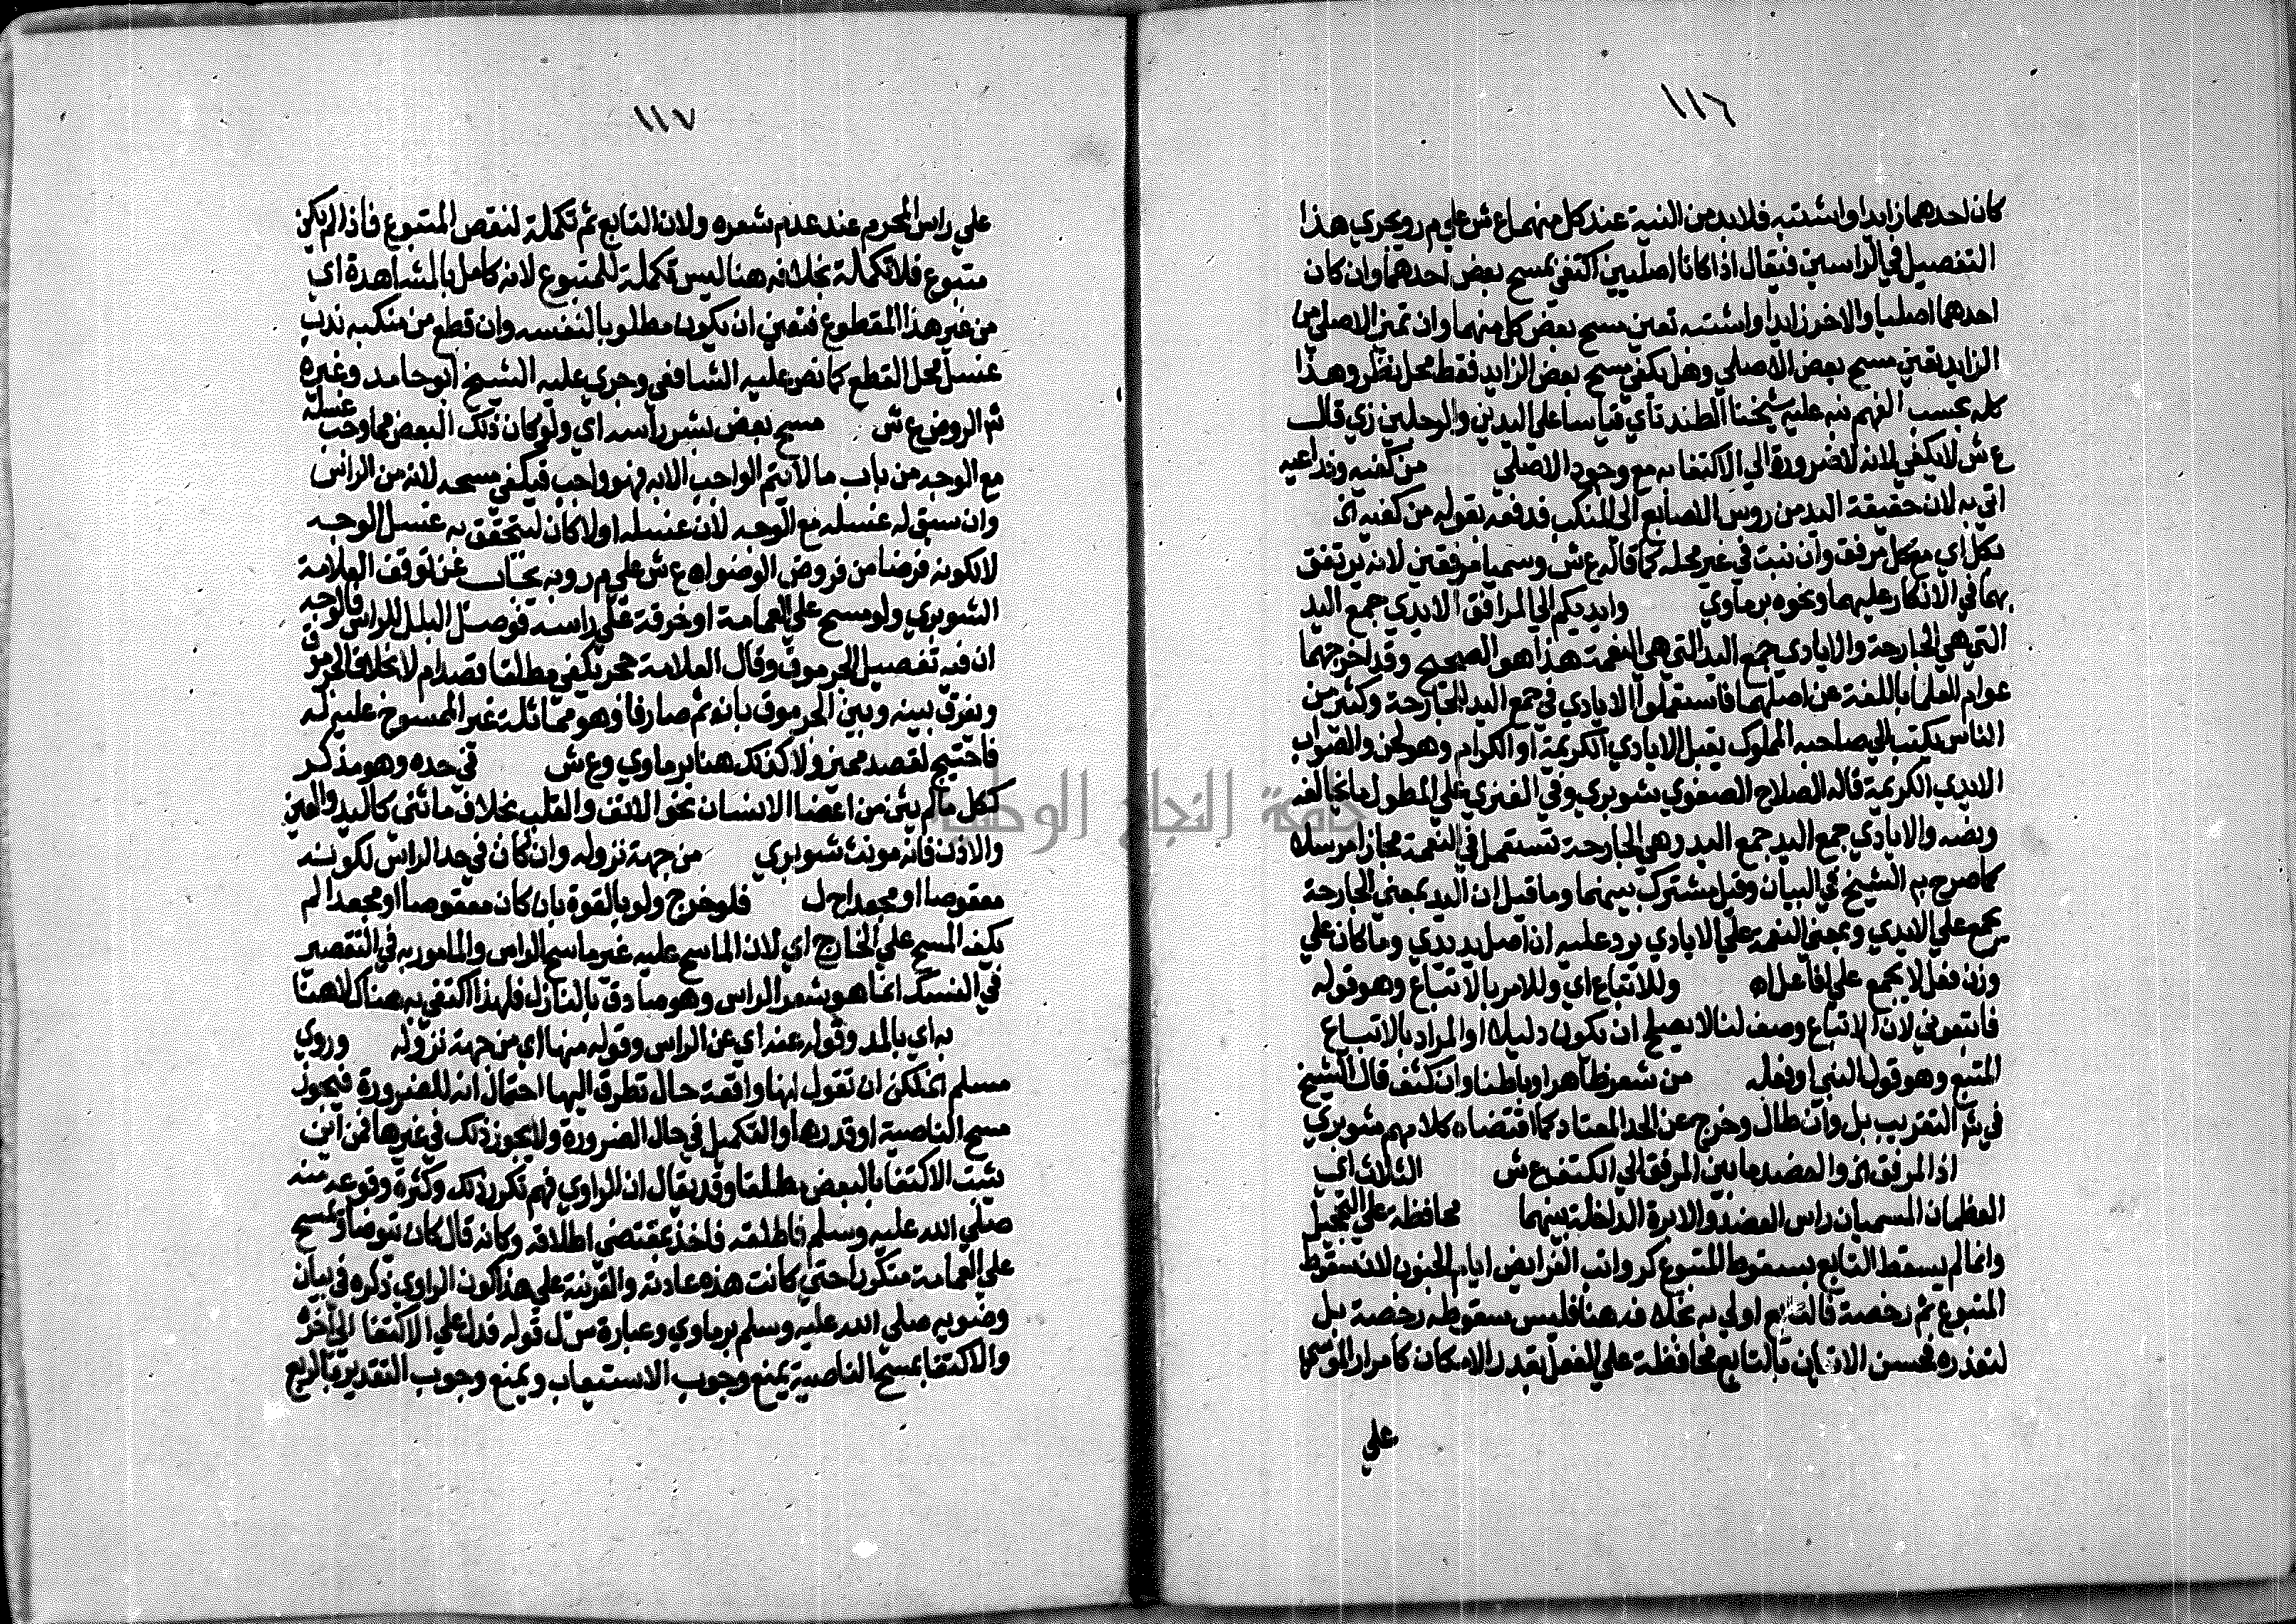 ١١٦
كان احدهما زايدا واشتبه فلابد من النية عند كل منهما ع ش علي م ر ويجري هذا
التفصيل في الراسين فيقال اذا كانا اصليين اكتفي بمسح بعض احدهما وان كان
احدهما اصليا والاخر زايدا واشتبه تعين مسح بعض كل منهما وان تميز الاصلي من
الزايد تعين مسح بعض الاصلي وهل يكفي مسح بعض الزايد فقط محل نظر وهذا
كله بحسب الفهم نبه عليه شيخنا الطندتاي قياسا على اليدين والرجلين زي قال
ع ش لا يكفي لانه لا ضرورة الي الاكتفا به مع وجود الاصلي من كفيه وذراعيه
اتي به لان حقيقة اليد من روس الاصابع الي المنكب فدفعه بقوله من كفيه اي
بكل اي مع كل مرفق وان نبت في غير محله كما قاله ع ش وسميا مرفقين لانه يرتفق
بهما في الاتكا عليهما ونحوه برماوي وايديكم الي المرافق الايدي جمع اليد
التي هي الجارحة والايادي جمع اليد التي هي النعمة هذا هو الصحيح وقد اخرجهما
عوام العلما باللغة عن اصلهما فاستعملوا الايادي في جمع اليد الجارحة وكثير من
الناس يكتب الي صاحبه المملوك يقبل الايادي الكريمة او الكرام وهو لحن والصواب
الايدي الكريمة قاله الصلاح الصفوي شوبري وفي الفنري علي المطول ما يخالفه
ونصه والايادي جمع اليد جمع اليد وهي الجارحة تستعمل في النعمة مجازا مرسلا
كما صرح به الشيخ في البيان وقيل مشترك بينهما وما قيل ان اليد بمعني الجارحة
تجمع علي الايدي وبمعني النعمة علي الايادي يرد عليه ان اصل يد يدي وما كان علي
وزن فعل لا يجمع علي افاعل اه وللاتباع اي وللامر بالاتباع وهو قوله
فاتبعوني لان الاتباع وصف لنا لا يصلح ان يكون دليلا او المراد بالاتباع
المتبع وهو قول النبي او فعله من شعر ظاهرا وباطنا وان كثف قال الشيخ
في شر التقريب بل وان طال وخرج عن الحد المعتاد كما اقتضاه كلامهم شوبري
اذ المرفق الخ والعضد ما بين المرفق الي الكتف ع ش الثلاث اي
العظمان المسميان راس العضد والابرة الداخلة بينهما محافظة علي التحجيل
وانما لم يسقط التابع بسقوط المتبوع كرواتب الفرايض ايام الجنون لان سقوط
المتبوع ثم رخصة فالتابع اولي به بخلافه هنا فليس سقوطه رخصة بل
لتعذره فحسن الاتيان بالتابع محافظة علي الفعل بقدر الامكان كامرار الموسي
علي
١١٧
علي راس المحرم عند عدم شعره ولان التابع ثم تكملة لنقص المتبوع فاذا لم يكن
متبوع فلا تكملة بخلافه هنا ليس تكملة للمتبوع لانه كامل بالمشاهدة اي
من غير هذا المقطوع فتعين ان يكون مطلوبا لنفسه وان قطع من منكبه ندب
غسل محل القطع كما نص عليه الشافعي وجري عليه الشيخ ابو حامد وغيره
شر الروض ع ش مسح بعض بشر راسه اي ولو كان ذلك البعض مما وجب غسله
مع الوجه من باب ما لا يتم الواجب الا به فهو واجب فيكفي مسحه لانه من الراس
وان سبق له غسله مع الوجه لان غسله اولا كان ليتحقق به غسل الوجه
لا لكونه فرضا من فروض الوضو اه ع ش علي م ر وبه يجاب عن توقف العلامة
الشوبري ولو مسح علي العمامة او خرقة علي راسه فوصل البلل للراس فالوجه
ان فيه تفصيل الجرموق وقال العلامة حجر يكفي مطلقا قصد ام لا بخلاف الجرموق
ونفرق بينه وبين الجرموق بانه ثم صارفا وهو مماثلة غير الممسوح عليه له
فاحتيج لقصد مميز ولا كذلك هنا برماوي وع ش في حده وهو مذكر
ككل ما لم يثن من اعضا الانسان نحو الانف والقلب بخلاف ما ثني كاليد والعين
والاذن فانه مونث شوبري من جهة نزوله وان كان في حد الراس لكونه
معقوصا او مجعدا ح ل فلو خرج ولو بالقوة بان كان معقوصا او مجعدا لم
يكف المسح علي الخارج اي لان الماسح عليه غير ماسح الراس والمامور به في التقصير
في النسك انما هو شعر الراس وهو صادق بالنازل فلهذا اكتفي به هناك لا هنا
به اي بالمد وقوله عنه اي عن الراس وقوله منها اي من جهة نزوله وروي
مسلم الخ لكن ان تقول انها واقعة حال تطرق اليها احتمال انه للضرورة فيجوز
مسح الناصية او قدرها والتكميل في حال الضرورة ولا يجوز ذلك في غيرها فمن اين
يثبت الاكتفا بالبعض مطلقا وقد يقال ان الراوي فهم تكرر ذلك وكثرة وقوعه منه
صلي الله عليه وسلم فاطلقه فاخذ بمقتضي اطلاقه وكانه قال كان يتوضا ويمسح
علي العمامة متكررا حتي كانت هذه عادته والقرينة علي هذا كون الراوي ذكره في بيان
وضويه صلي الله عليه وسلم برماوي وعبارة س ل قوله فدل علي الاكتفا الي اخره
والاكتفا بمسح الناصية يمنع وجوب الاستيعاب ويمنع وجوب التقدير بالربع
جامعة النجاح الوطنية